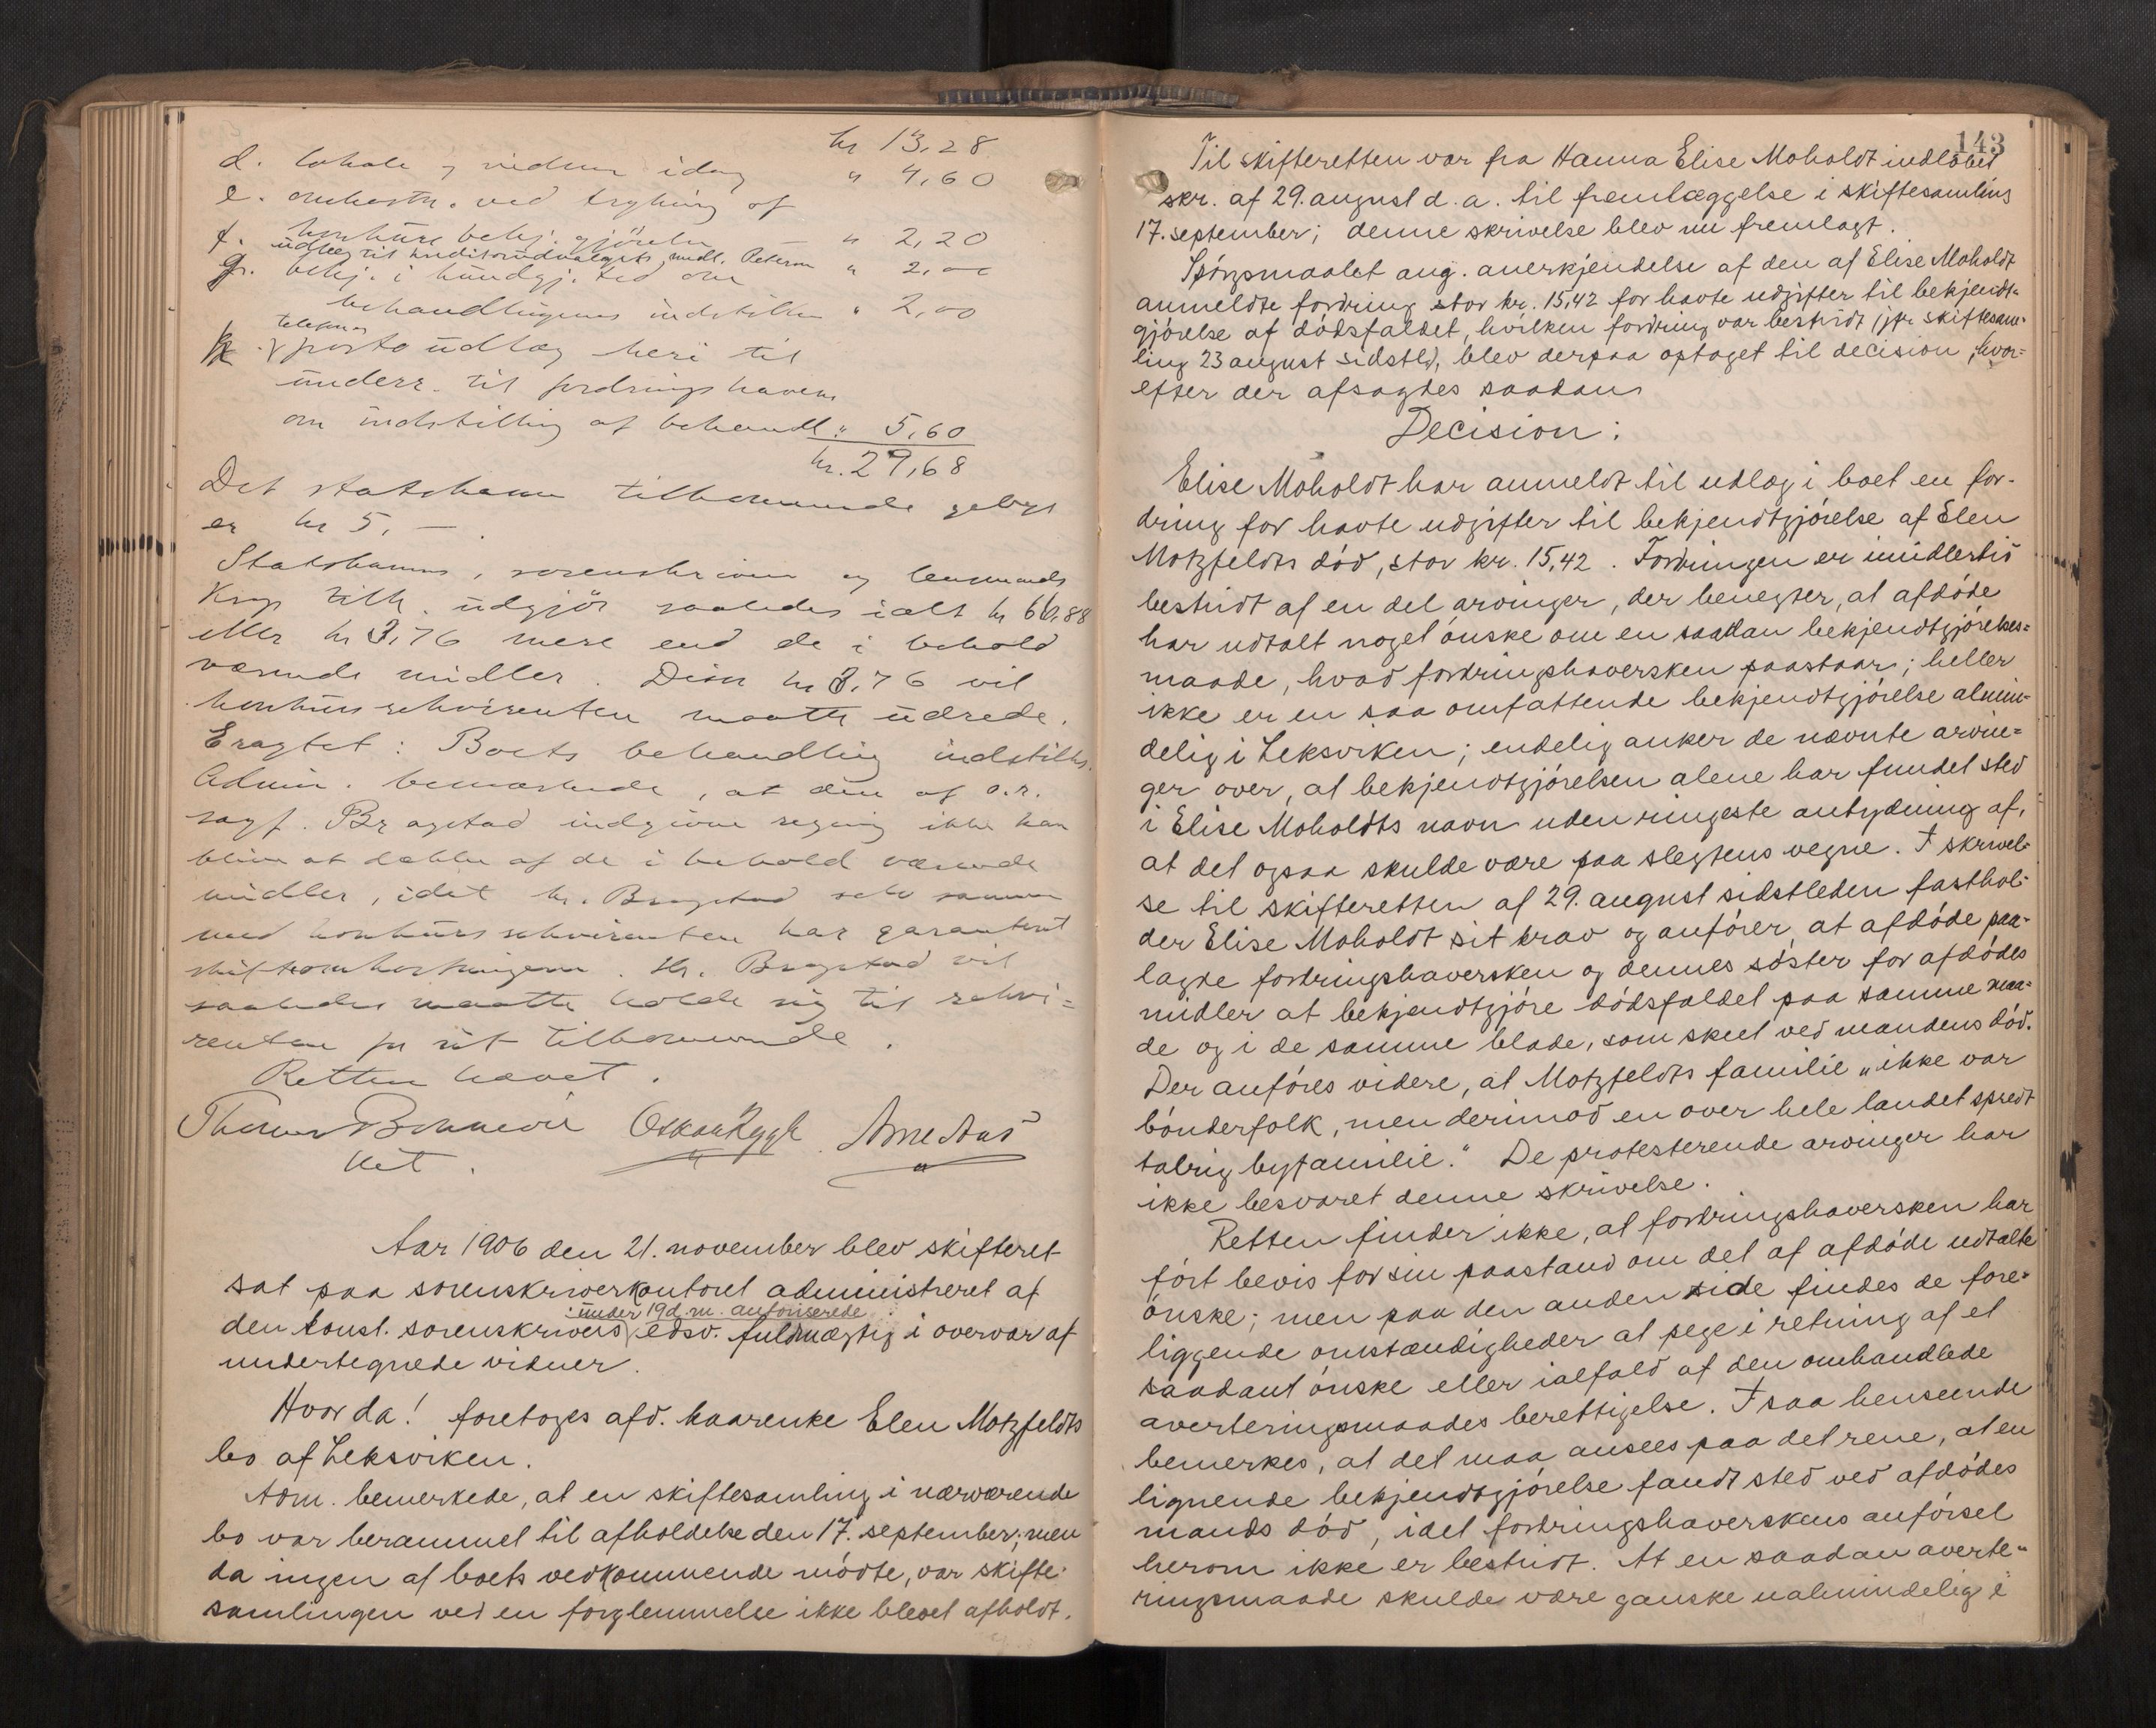 kr 13,28
d. lokale og vidner idag " 4,60
e. omkostn. ved trykning af
konkurs bekj. gjörelse " 2,20
f. udlæg til kreditorudvalgets medl. Peterson " 2,00
g. bekj. i kundgj. tid. om
behandlingens indstillen " 2,00
telefon og
porto udlæg heri til
underr. til fordringshavere
om indstilling af behandl. " 5,60
kr. 29,68
Det statskassen tilkommende gebyr
er kr 5,—
Statskassens, sorenskriverens og lensmands
Krogs tilk. udgjör saaledes ialt kr 66,88
eller kr 3,76 mere end de i behold
værende midler. Disse kr 3,76 vil
konkursrekvirenten maatte udrede.
Eragtet: Boets behandling indstilles.
Admin. bemærkede, at den af o.r.
sagf. Bragstad indgivne regning ikke kan
blive at dække af de i behold værende
midler, idet hr. Bragstad selv sammen
med konkursrekvirenten har garanteret
skifteomkostningerne. Hr. Bragstad vil
saaledes maatte holde sig til rekvi=
renten for sit tilkommende.
Retten hævet.
Thomas Bonnevie Oskar Rygh Arne Aas
kst. "  "
Aar 1906 den 21. november blev skifteret
sat paa sorenskriverkontoret administreret af
under 19 d. m. autoriserede
den konst. sorenskrivers edsv. fuldmægtig i overvær af
undertegnede vidner.
Hvor da! foretoges afd. kaarenke Elen Motzfeldts
bo af Leksviken.
Adm. bemerkede, at en skiftesamling i nærværende
bo var berammet til afholdelse den 17. september; men
da ingen af boets vedkommende mödte, var skifte-
samlingen ved en forglemmelse ikke blevet afholdt.
143
Til skifteretten var fra Hanna Elise Moholdt indlöbet
skr. af 29. august d. a. til fremlæggelse i skiftesamling
17. september; denne skrivelse blev nu fremlagt.
Spörgsmaalet ang. anerkjendelse af den af Elise Moholdt
anmeldte fordring stor kr. 15,42 for havte udgifter til bekjendt=
gjörelse af dödsfaldet, hvilken fordring var bestridt (jfr skiftesam-
ling 23 august sidstl), blev derpaa optaget til decision, hvor=
efter der afsagdes saadan
Decision:
Elise Moholdt har anmeldt til udlæg i boet en for-
dring for havte udgifter til bekjendtgjörelse af Elen
Motzfeldts död, stor kr. 15,42. Fordringen er imidlertid
bestridt af en del arvinger, der benegter, at afdöde
har udtalt noget önske om en saadan bekjendtgjörelses=
maade, hvad fordringshaversken paastaar; heller
ikke er en saa omfattende bekjendtgjörelse almin=
delig i Leksviken; endelig anker de nævnte arvin=
ger over, at bekjendtgjörelsen alene har fundet sted
i Elise Moholdts navn uden ringeste antydning af,
at det ogsaa skulde være paa slegtens vegne. I skrivel-
se til skifteretten af 29. august sidstleden fasthol-
der Elise Moholdt sit krav og anförer, at afdöde paa-
lagde fordringshaversken og dennes söster for afdödes
midler at bekjendtgjöre dödsfaldet paa samme maa=
de og i de samme blade, som skeet ved mandens död.
Der anföres videre, at Motzfeldts familie „ikke var
bönderfolk, men derimod en over hele landet spredt
talrig byfamilie." De protesterende arvinger har
ikke besvaret denne skrivelse.
Retten finder ikke, at fordringshaversken har
fört bevis for sin paastand om det af afdöde udtalte
önske; men paa den anden side findes de fore=
liggende omstændigheder at pege i retning af et
saadant önske eller ialfald af den omhandlede
averteringsmaades berettigelse. I saa henseende
bemerkes, at det maa ansees paa det rene, at en
lignende bekjendtgjörelse fandt sted ved afdödes
mands död, idet fordringshaverskens anförsel
herom ikke er bestridt. At en saadan averte=
ringsmaade skulde være ganske ualmindelig i